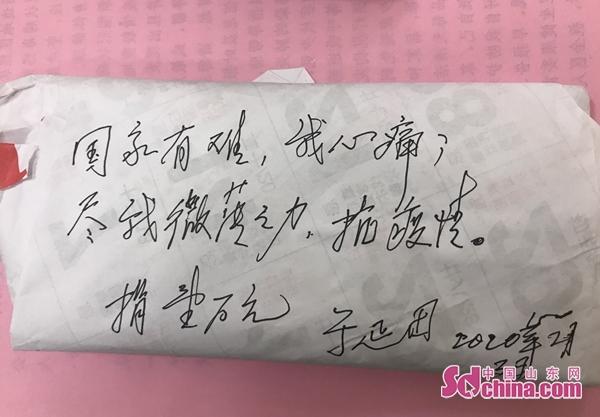 国家有难，我心痛；
尽我微薄之力，抗疫情。
捐壹万元
2020年2月
中国山东网
Sdchina.com